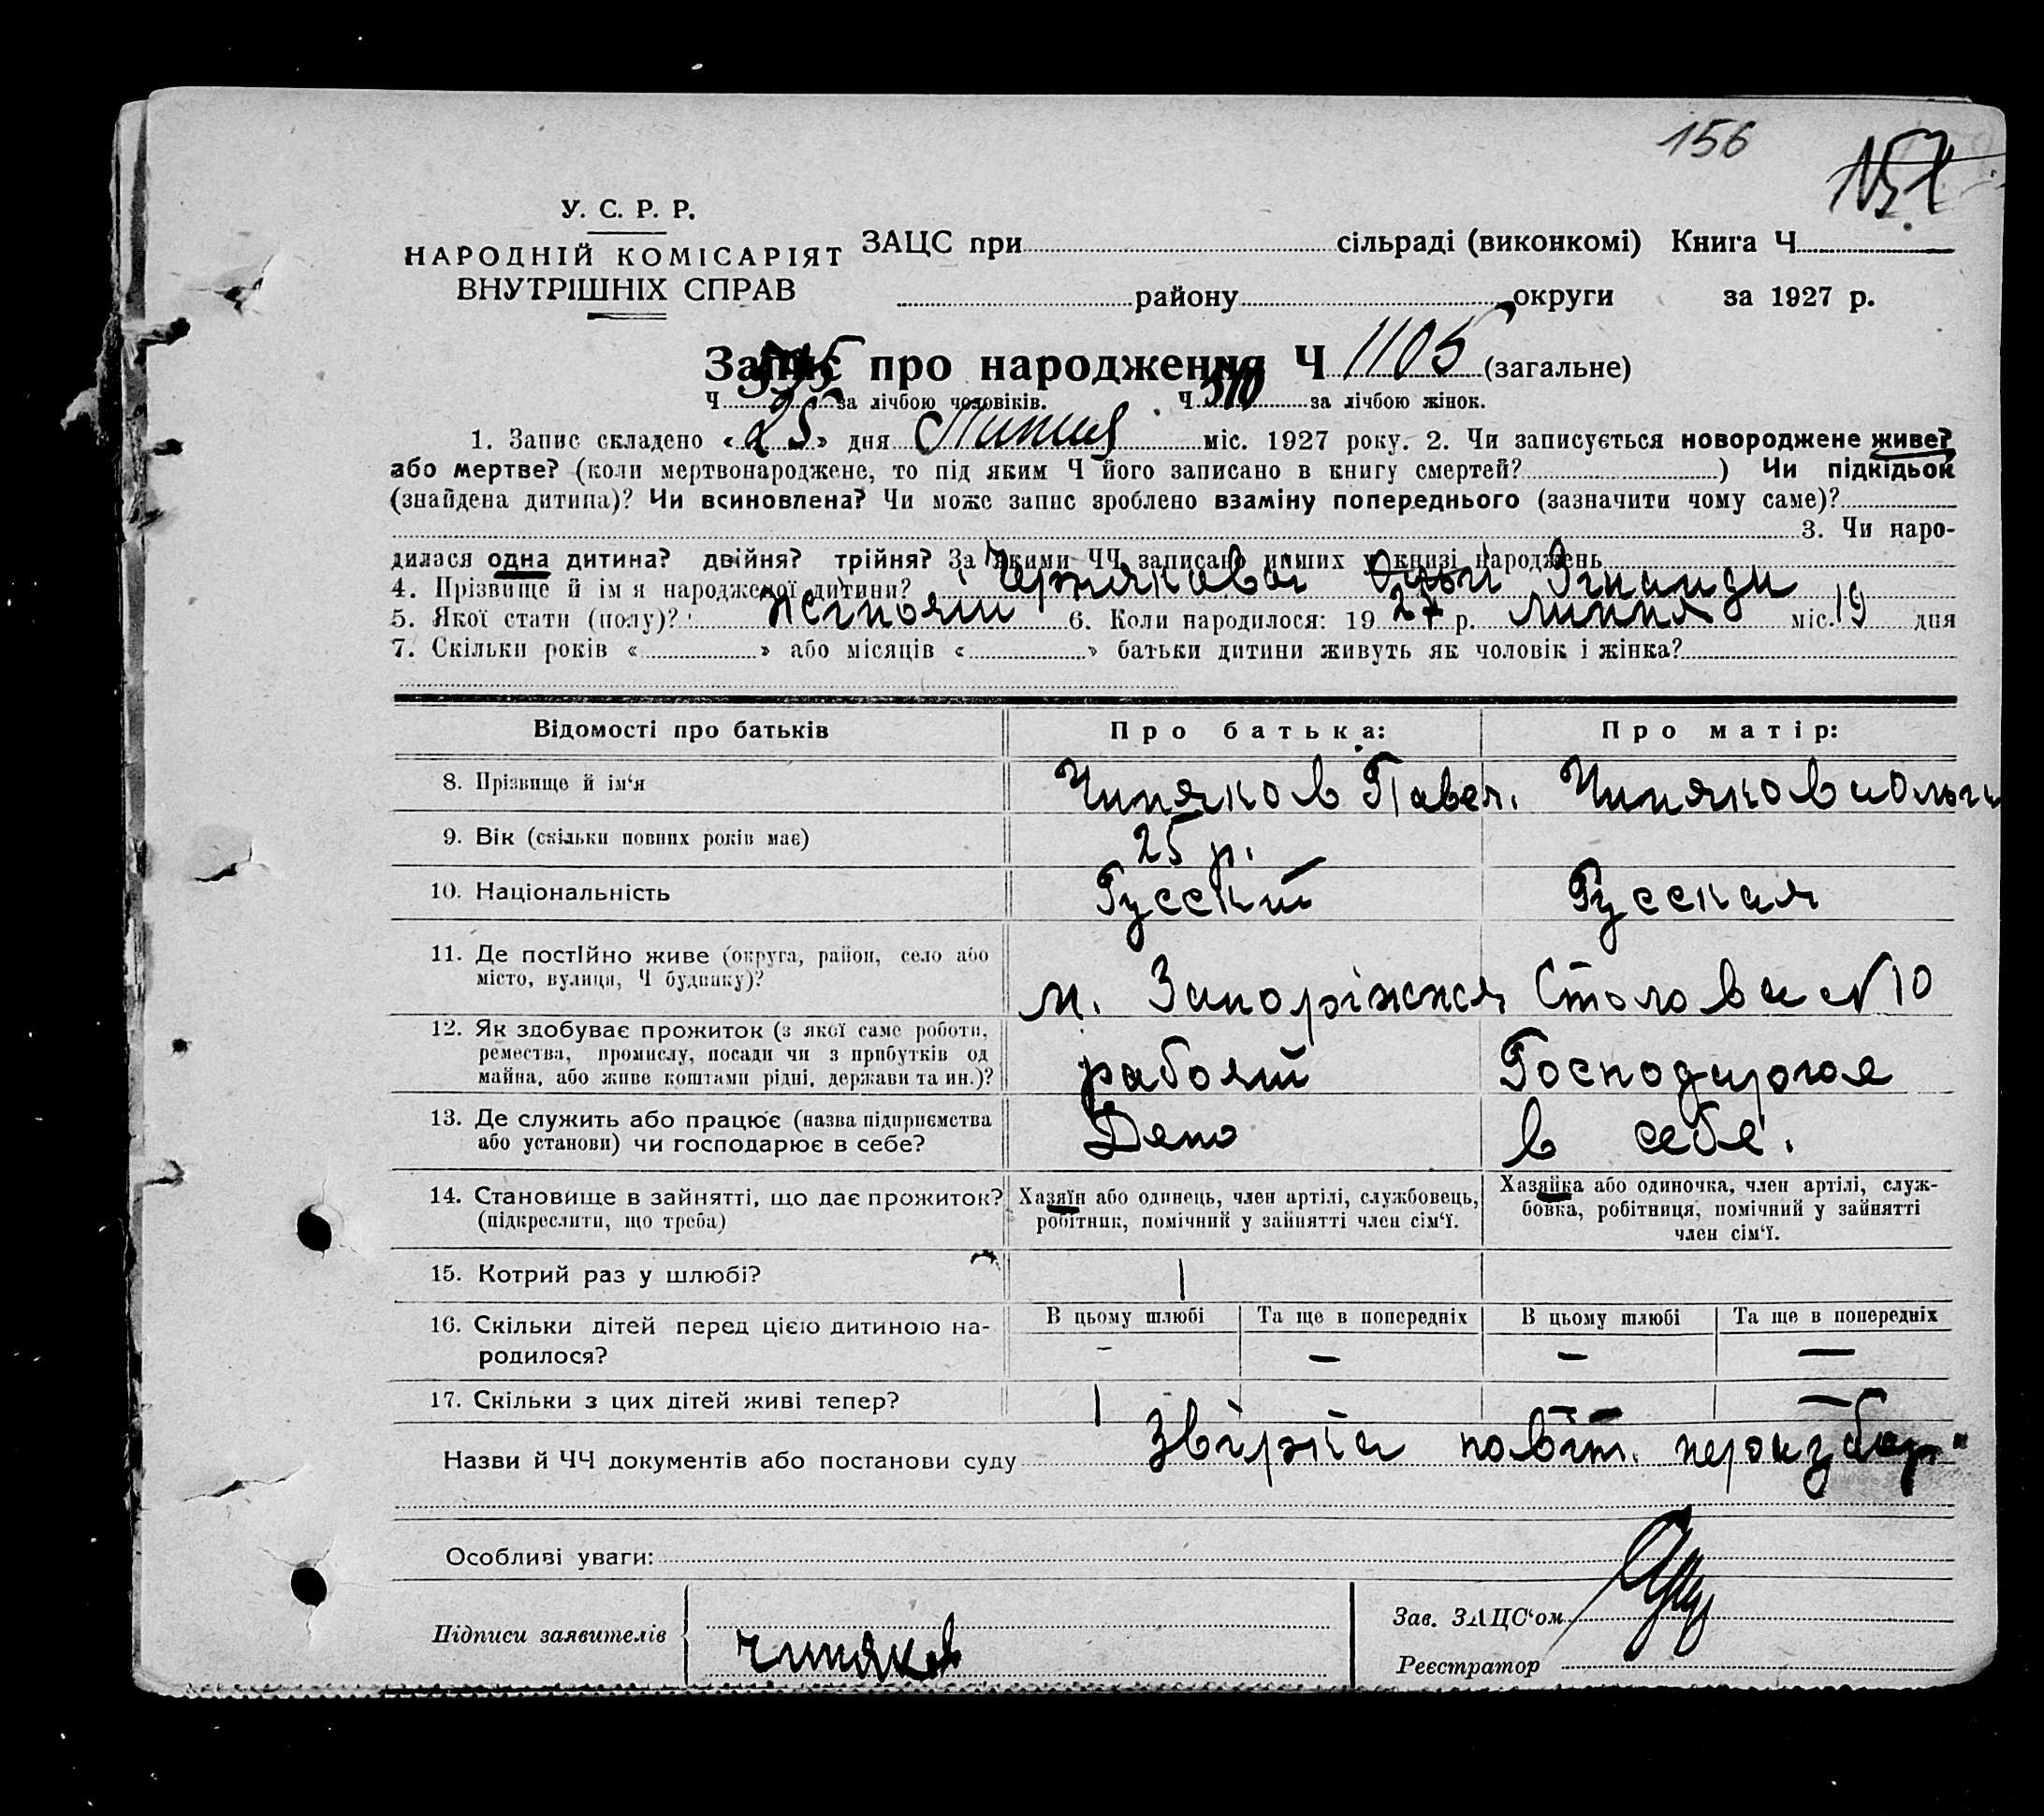 156
157
У. С. Р. Р.
НАРОДНІЙ КОМІСАРІЯТ
ВНУТРІШНІХ СПРАВ
ЗАЦС при сільраді (виконкомі) Книга Ч
району округи за 1927 р.
Запис про народження Ч 1105 (загальне)
Ч 595 за лічбою чоловіків. Ч 510 за лічбою жінок.
1. Запис складено «25» дня Липня міс. 1927 року. 2. Чи записується новороджене живе?
або мертве? (коли мертвонароджене, то під яким Ч його записано в книгу смертей?) Чи підкідьок
(знайдена дитина)? Чи всиновлена? Чи може запис зроблено взаміну попереднього (зазначити чому саме)?
3. Чи наро-
дилася одна дитина? двійня? трійня? За якими ЧЧ записано инших у книзі народжень
4. Прізвище й ім'я народженої дитини?
5. Якої стати (полу)? 6. Коли народилося: 1927 р. липня міс. 19 дня
7. Скільки років « » або місяців « » батьки дитини живуть як чоловік і жінка?
Відомості про батьків Про батька: Про матір:
8. Прізвище й ім‘я Чиняков Павел. Чинякова Ольга
9. Вік (скільки повних років має) 25 р.
10. Національність Русский Русская
11. Де постІйно живе (округа, район, село або
місто, вулиця, Ч будинку)?
м. Запоріжжя Столова №10
12. Як здобуває прожиток (з якої саме роботи,
ремества, промислу, посади чи з прибутків од
майна, або живе коштами рідні, держави та ин.)?
рабочий
13. Де служить або працює (назва підприємства
або установи) чи господарює в себе?
Депо в себе.
14. Становище в зайнятті, що дає прожиток?
(підкреслити, що треба)
Хазяїн або одинець, член артілі, службовець,
робітник, помічний у зайнятті член сім‘ї.
Хазяйка або одиночка, член артілі, служ-
бовка, робітниця, помічний у зайнятті
член сім‘ї.
15. Котрий раз у шлюбі? 1
16. Скільки дітей перед цією дитиною на-
родилося?
В цьому шлюбі Та ще в попередніх В цьому шлюбі Та ще в попередніх
– — — —
17. Скільки з цих дітей живі тепер? 1 — —
Назви й ЧЧ документів або постанови суду
Особливі уваги:
Підписи заявителів Чиняков
Зав. ЗАЦС‘ом
Реєстратор